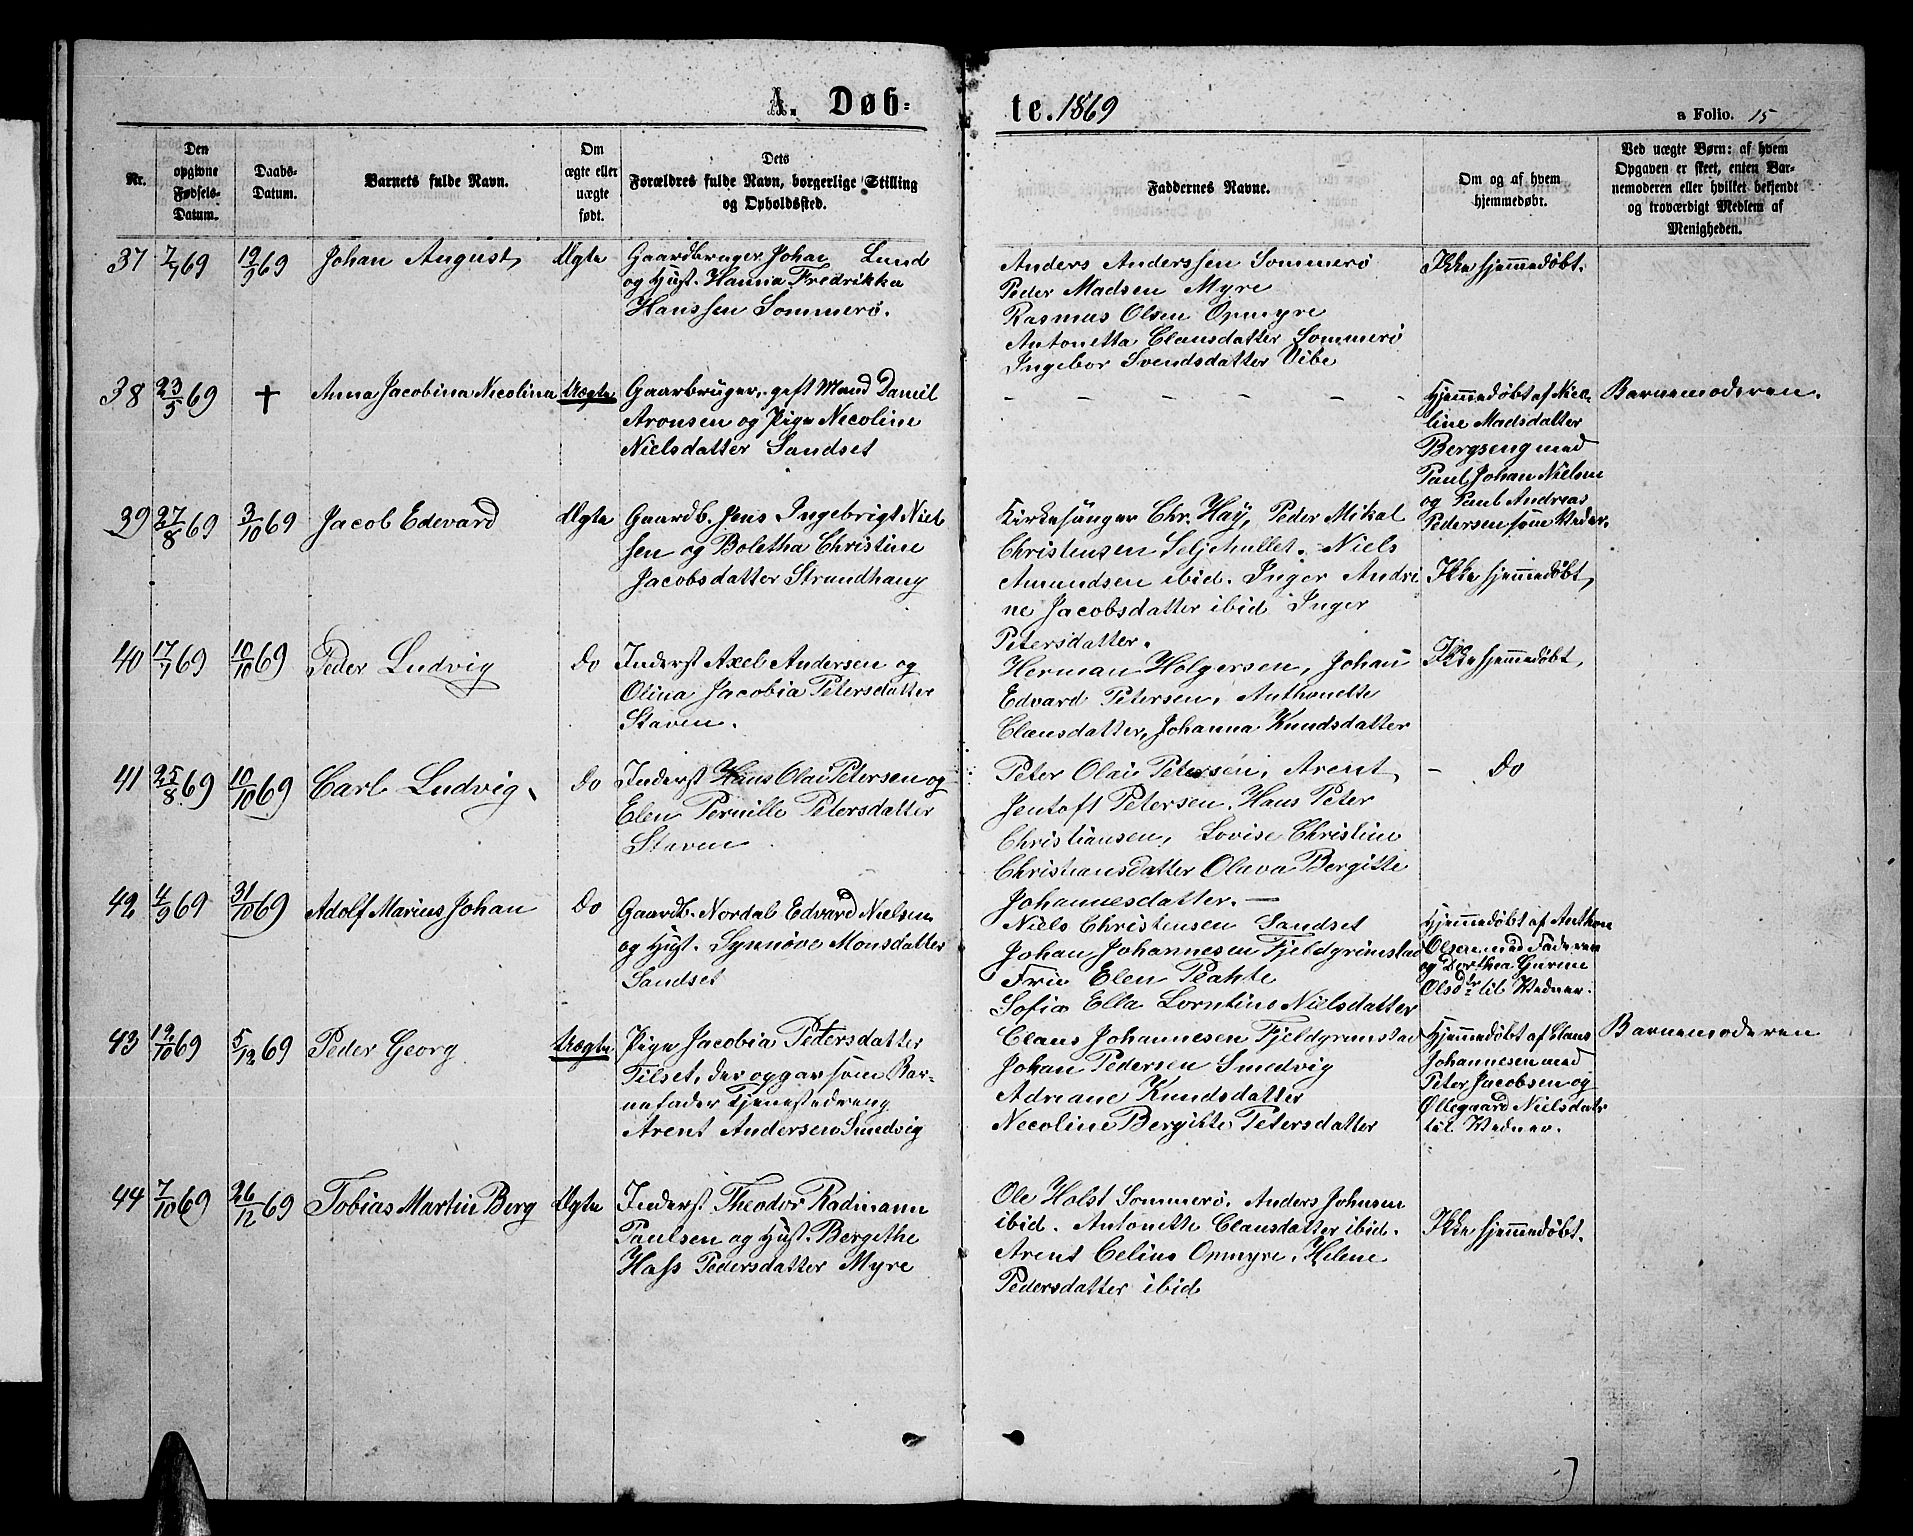 A. Døb-
te. 1869
a Folio. 15
Nr.
Den
opgivne
Fødsels-
Datum.
Daabs-
Datum.
Barnets fulde Navn.
Om
ægte eller
uægte
født.
Dets
Forældres fulde Navn, borgerlige Stilling
og Opholdssted.
Faddernes Navne.
Om og af hvem
hjemmedøbt.
Ved uægte Børn: af hvem
Opgaven er skeet, enten Bar-
nemoderen eller hvilket bekjendt
og troværdigt Medlem af
Menigheden.
37 7/7 69 19/9 69 Johan August, Ægte
Gaardbruger Johan Lund
og Hust. Hanna Fredrikka
Hanssen Sommerø.
Anders Anderssen Sommerø
Peder Madsen Myre
Rasmus Olsen Opmyre
Antonetta Clausdatter Sommerø
Ingebor Svendsdatter Vibe
Ikke hjemmedøbt.
38 23/5 69 + Anna Jacobina Nicolina Uægte
Gaarbruger, gift Mand Daniel
Aronsen og Pige Nicoline
Nielsdatter Sandset
- - - - - -
Hjemmedøbt af Nico-
line Madsdatter
Bergseng med
Paul Johan Nielsen
og Paul Andreas
Pedersen som Vidner.
Barnemoderen.
39 27/8 69 3/10 69 Jacob Edevard Ægte
Gaardb. Jens Ingebrigt Niel
sen og Boletha Christine
Jacobsdatter Strandhaug
Kirkesanger Chr. Høy, Peder Mikal
Christensen Seljehullet. Niels
Amundsen ibid. Inger Andri
ne Jacobsdatter ibid Inger
Petersdatter.
Ikke hjemmedøbt,
40 17/7 69 10/10 69 Peder Ludvig do
Inderst Axel Andersen og
Olina Jacobia Petersdatter
Staven.
Herman Holgersen, Johan
Edvard Petersen, Anthonette
Clausdatter, Johanna Knudsdatter
Ikke hjemmedøbt,
41 25/8 69 10/10 69 Carl Ludvig, do
Inderst Hans Olai Petersen og
Elen Pernille Petersdatter
Staven
Peter Olai Petersen, Arent
Jentoft Petersen, Hans Peter
Christiansen, Lovise Christine
Christiansdatter Olava Bergitte
Johannesdatter. —
- Do
42 4/9 69 31/10 69 Adolf Marius Johan Do
Gaardb. Nordal Edvard Nielsen
og Hust. Synnøve Monsdatter
Sandset
Niels Christensen Sandset
Johan Johannesen Fjeldgrimstad
Fru Elen
Sofia Ella Lorntine Nielsdatter
Hjemmedøbt af Anthon
Olsen med Faderen
og Dorthea Gurine
Olsdtr til Vidner.
43 19/10 69 5/12 69 Peder Georg Uægte
Pige Jacobia Petersdatter
Tilset, der opgav som Bar-
nefader Tjenestedreng
Arent Andersen Smedvig
Claus Johannesen Fjeldgrimstad
Johan Pedersen Smedvig
Adriane Knudsdatter
Necoline Bergitte Petersdatter
Hjemmedøbt af Claus
Johannesen med
Peter Jacobsen og
Øllegaard Nielsdatr
til Vidner.
Barnemoderen
44 7/10 69 26/12 69 Tobias Martin Berg Ægte
Inderst Theodor Radimann
Paulsen og Hust. Bergithe
Hass Pedersdatter Myre
Ole Holst Sommerø. Anders Johnsen
ibid. Antonette Clausdatter ibid.
Arent Celius Opmyre. Helene
Pedersdatter ibid
Ikke hjemmedøbt.